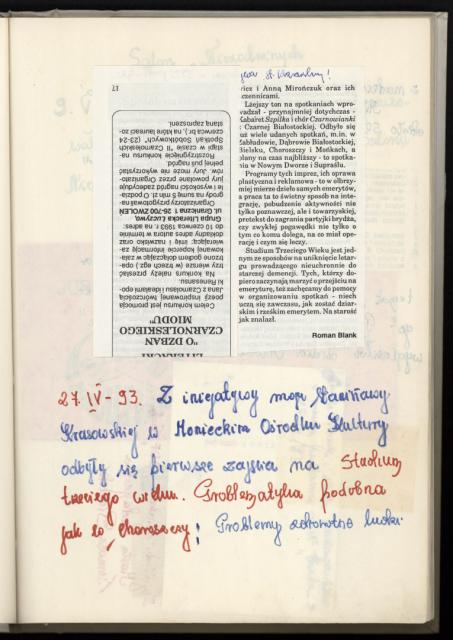 ricz i Anną Mirończuk oraz ich
uczennicami.
Lżejszy ton na spotkaniach wpro-
wadzał - przynajmniej dotychczas -
Gabaret Szpilka i chór Czarnowianki
Czarnej Białostockiej. Odbyło się
już wiele udanych spotkań, m.in. w
Zabłudowie, Dąbrowie Białostockiej,
Bielsku, Choroszczy i Mońkach, a
plany na czas najbliższy - to spotka-
nia w Nowym Dworze i Supraślu.
Programy tych imprez, ich oprawa
plastyczna i reklamowa - to w olbrzy-
miej mierze dzieło samych emerytów,
a praca ta to świetny sposób na inte-
grację, pobudzenie aktywności nie
tylko poznawczej, ale i towarzyskiej,
pretekst do zagrania partyjki brydża,
czy zwykłej pogawędki nie tylko o
tym co komu dolega, na co miał ope-
rację i czym się leczy.
Studium Trzeciego Wieku jest jed-
nym ze sposobów na uniknięcie letar-
gu prowadzącego nieuchronnie do
starczej demencji. Tych, którzy do-
piero zaczynają marzyć o przejściu na
emeryturę, też zachęcamy do pomocy
w organizowaniu spotkań - niech
uczą się zawczasu, jak zostać dziar-
skim i rześkim emerytem. Na starość
jak znalazł.
Roman Blank
LITERACKI
"O DZBAN
CZARNOLESKIEGO
MIODU"
Celem konkursu jest promocja
poezji inspirowanej twórczością
Jana z Czarnolasu i ideałami epo-
ki Renesansu.
Na konkurs należy przesłać
trzy wiersze (w trzech egz.) opa-
trzone godłem dołączając w zala-
kowanej kopercie informację za-
wierającą: imię i nazwisko oraz
dokładny adres autora w terminie
do 10 czerwca 1993 r. na adres:
Grupa Literacka Łuczywo,
ul. Graniczna 1 26-700 ZWOLEŃ
Organizatorzy przygotowali na-
grody na sumę 5 mln zł. O podzia-
le i wysokości nagród zadecyduje
jury powołane przez Organizato-
rów. Jury może nie wykorzystać
pełnej puli nagród.
Rozstrzygnięcie konkursu na-
stąpi w czasie III Czarnoleskich
Spotkań Sobótkowych (23-24
czerwca br.), na które laureaci zo-
staną zaproszeni.
17
27. IV - 93. Z inicjatywy mgr Stanisławy
Krasowskiej w Monieckim Ośrodku Kultury
odbyły się pierwsze zajęcia na Studium
trzeciego wieku. Problematyka podobna
jak w Choroszczy; Problemy zdrowotne ludzi.